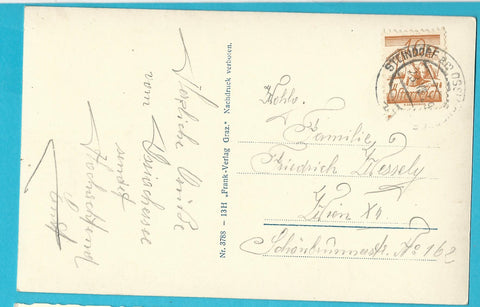 Herzliche Grüße
vom Ossiachersee
sendet
Hochachtend
Nr. 3788 - 13H „Frank-Verlag Graz.“ Nachdruck verboten.
STEINDORF AM OSS
10
Familie
Friedrich Wessely
Wien XII
Schönbrunnerstr. No 162